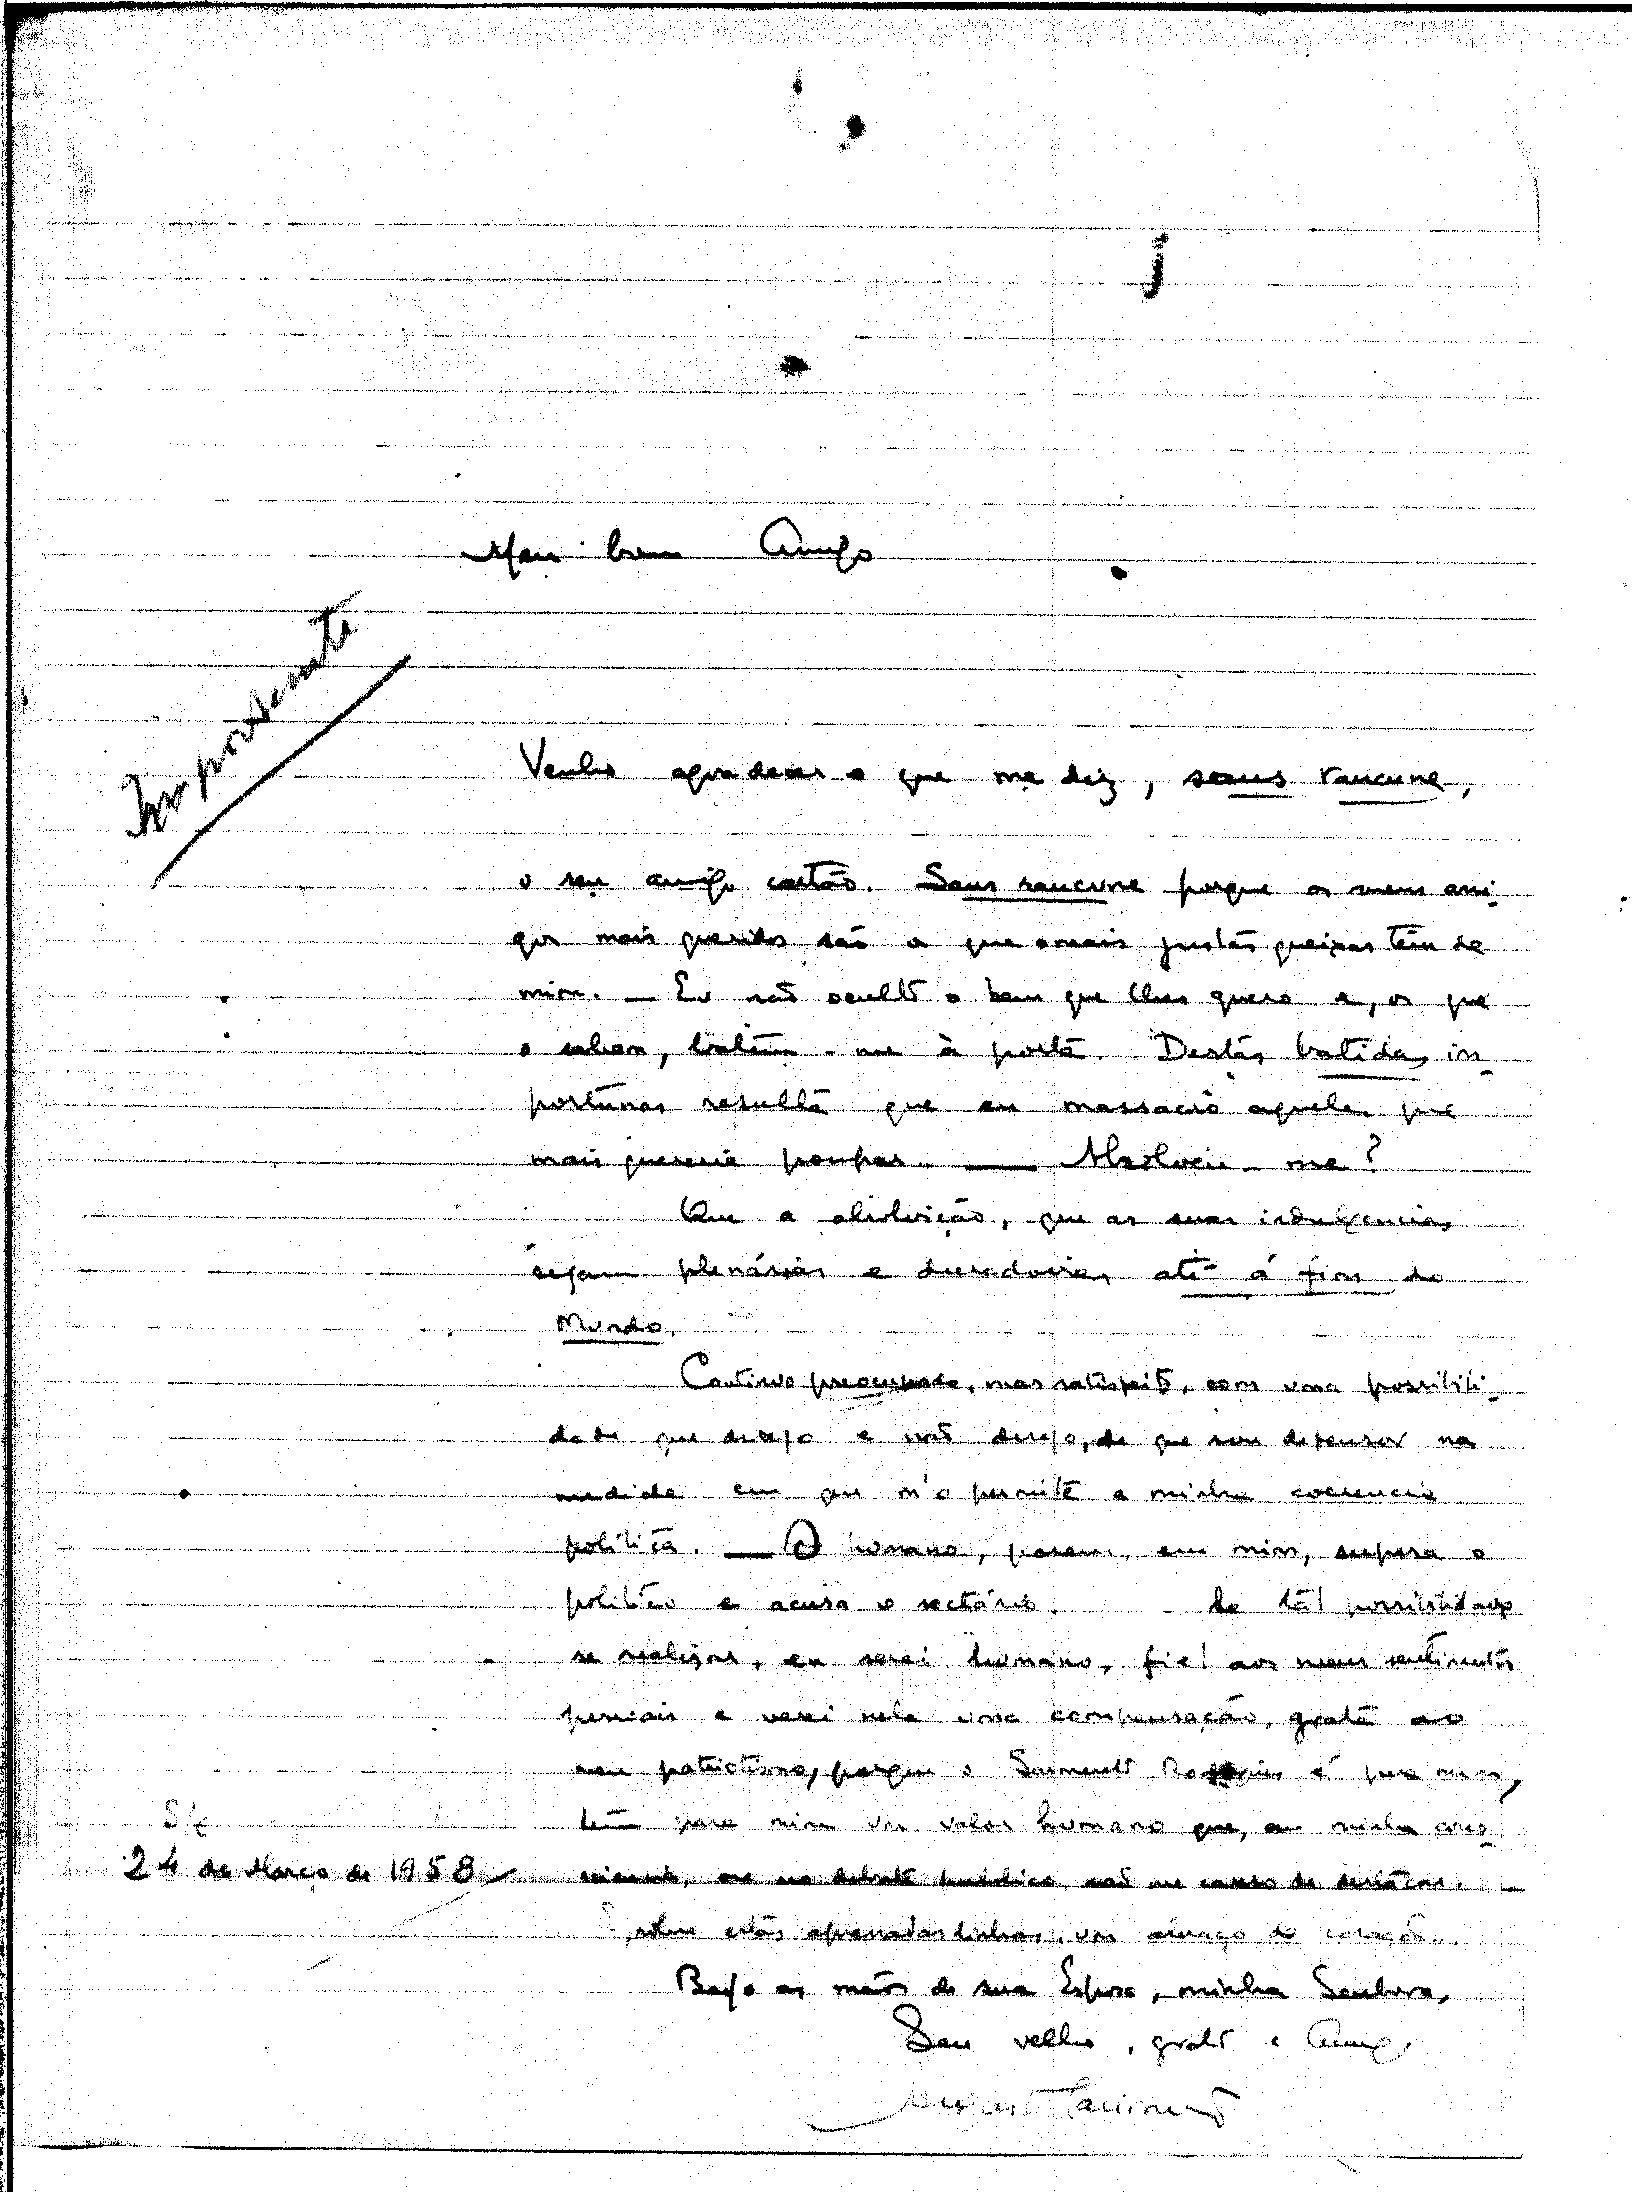 j
Meu bom Amigo
Importante
Venho agradecer o que me diz, sans rancune,
o seu amigo cartão. Sans rancune porque os meus ami-
gos mais queridos são os que mais justas queixas têm de
mim. — Eu não oculto o bem que lhes quero e, os que
o sabem, batem-me à porta. Destas batidas im-
portunas resulta que eu massacro aqueles que
mais quereria poupar. — Absolveu-me?
Que a absolvição, que as suas indulgencias,
sejam plenárias e duradoiras, até á fim do
Mundo.
Continuo preocupado, mas satisfeito, com uma possibili-
dade que desejo e não desejo, de que sou defensor na
medida em que m'o permite a minha coerencia
politica. — O humano, porem, em mim, supera o
politico e acusa o sectário. Se tal possibilidade
se realizar, eu serei humano, fiel aos meus sentimentos
e verei nela uma compensação, grata ao
meu patriotismo, porque o Sarmento Rodrigues é para mim,
tem para mim um valor humano que, em minha cons-
ciencia, me no debate politico, não me canso de destacar.
S/c
24 de Março de 1958
sobre estas apressadas linhas, um abraço do coração.
Beijo as mãos de sua Esposa, minha Senhora,
Seu velho, grato e Amigo